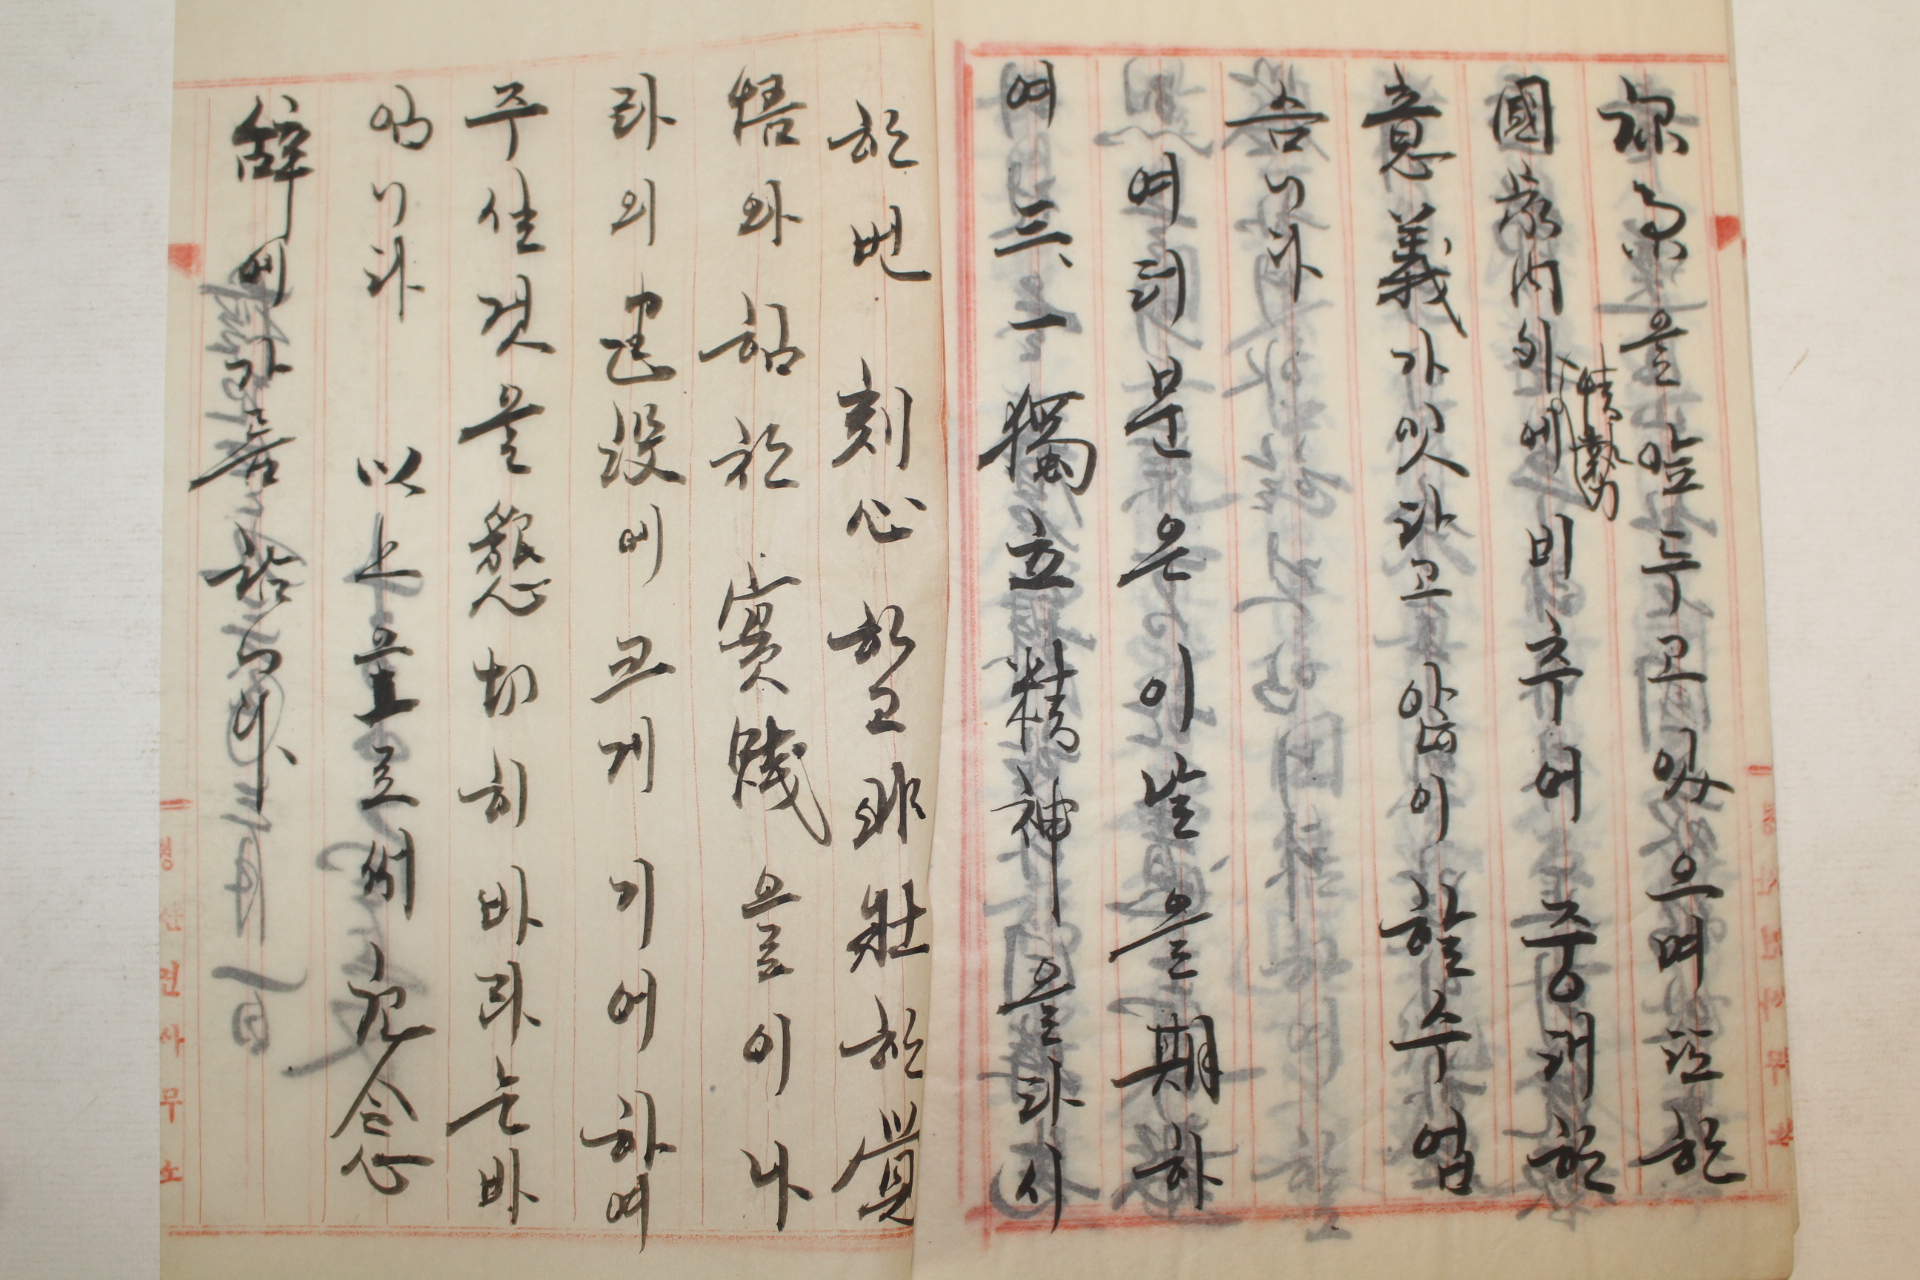 을 앞두고 있으며 또한
國家內外情勢에 비추어 중대한
意義가 있다고 아니 할 수 없
슴니다
여러분은 이 날을 期하
여 三一獨立精神을 다시
한번 刻心하고 非壯한 覺
悟와 한 實踐을 이 나
라의 建設에 크게 기어하여
주실것을 懇切히 바라는 바
임니다 以上으로써 紀念
辭에 가름 함니다.